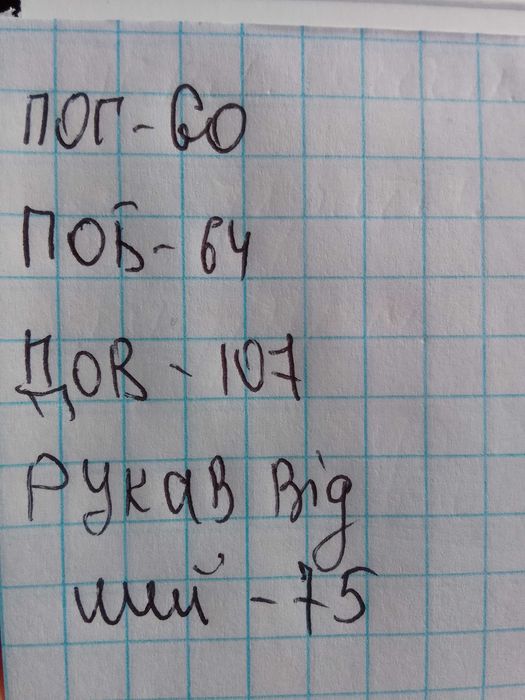 ПОГ - 60
ПОБ - 64
ДОВ - 107
РУКАВ від
ший - 75